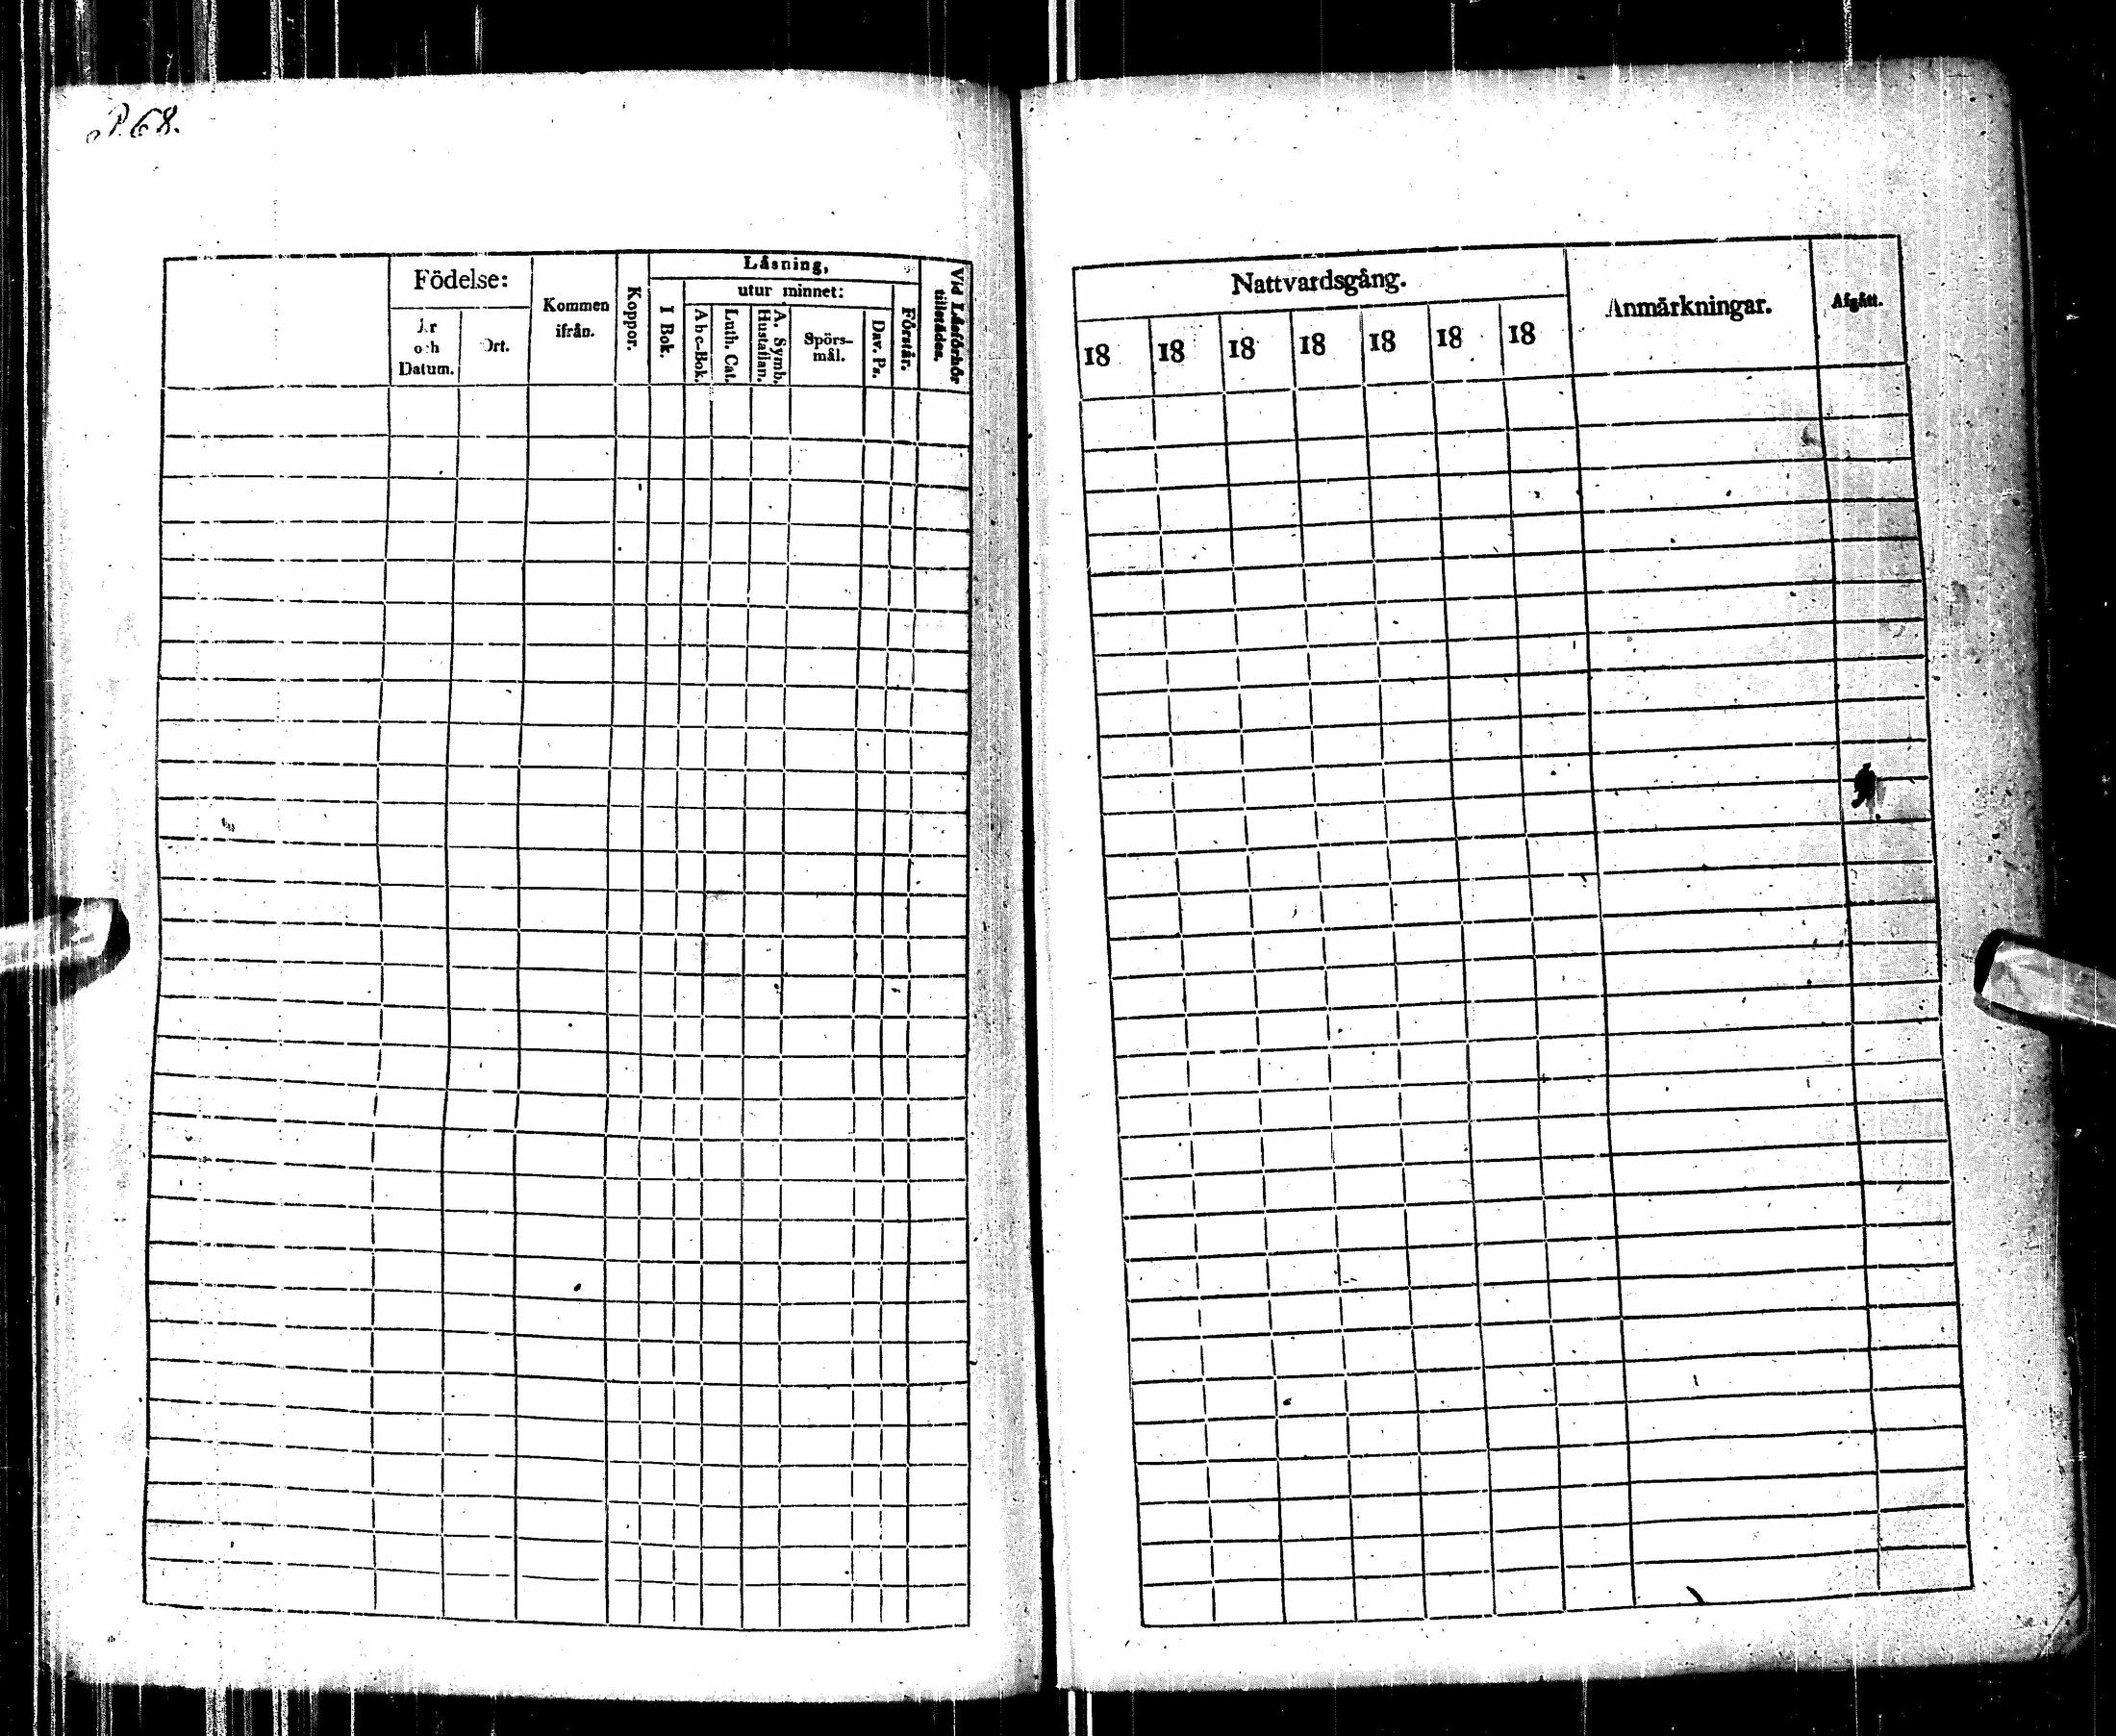 P. 68.
Födelse:
År
och
Datum.
Ort.
Kommen
ifrån.
Koppor.
Läsning,
I Bok.
utur minnet:
Abc-Bok.
Luth. Cat.
A. Symb.
Hustaflan.
Spörs-
mål.
Dav. Ps.
Förstår.
Vid Läsförhör
tillstädes.
Nattvardsgång.
18 18 18 18 18 18 18
Anmärkningar.
Afgått.